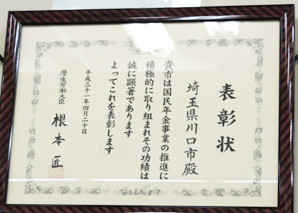 表彰状
埼玉県川口市殿
貴市は国民年金事業の推進に
積極的に取り組まれその功績は
誠に顕著であります
よってこれを表彰します
平成三十一年四月二十日
厚生労働大臣
根本匠